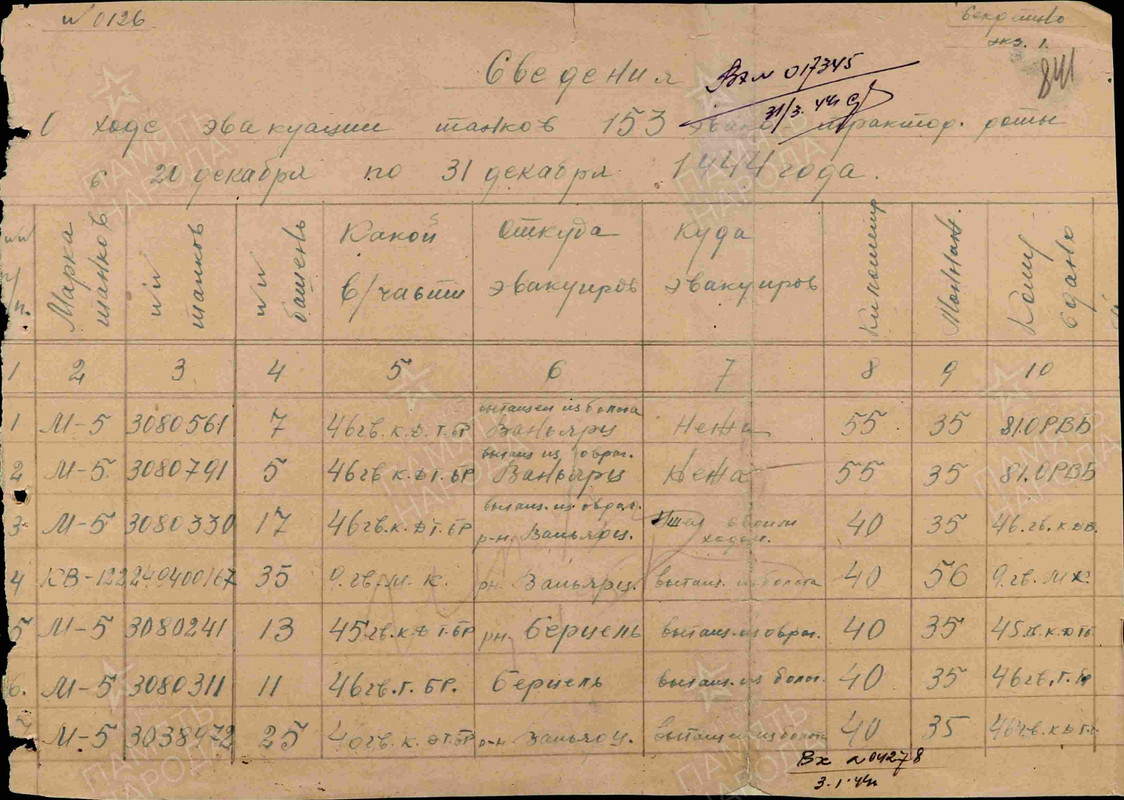 № 0126
экз. 1.
841
Сведения
Вх № 017345
31/3. 44
О ходе эвакуации танков 153 эвако трактор. роты
с 20 декабря по 31 декабря 1944 года.
№№ п/п. Марка танков №№ танков №№ башень Какой в/части Откуда эвакуиров Куда эвакуиров Километр Тоннаж. Кому сдано
1 2 3 4 5 6 7 8 9 10
вытащен из болота
1 М-5 3080561 7 46 гв. к. д. т. бр Ваньярц Нежа 55 35 81.ОРВБ
вытащ из овраг.
2 М-5 3080791 5 46 гв. к. д т. бр Ваньярц Нежа 55 35 81.ОРВБ
вытащ. из овраг.
3 М-5 3080330 17 46 гв. к. д т. бр р-н. Ваньярц. своим ходом. 40 35 46. гв. к д
4 КВ-122 240400167 35 9. гв. м. к. рн. Ваньярц. вытащ. из болота 40 56 9. гв. м к.
5 М-5 3080241 13 45 гв. к. д т. бр рн. Берцель вытащ. из овраг. 40 35 45
6. М-5 3080311 11 46 гв. т. бр. Берцель вытащ. из болот. 40 35 46 гв. т. бр
М-5 3038972 25 гв. к. д т. бр р-н вытащен из болота 40 35 46 гв. к д
Вх № 04278
3.1.44